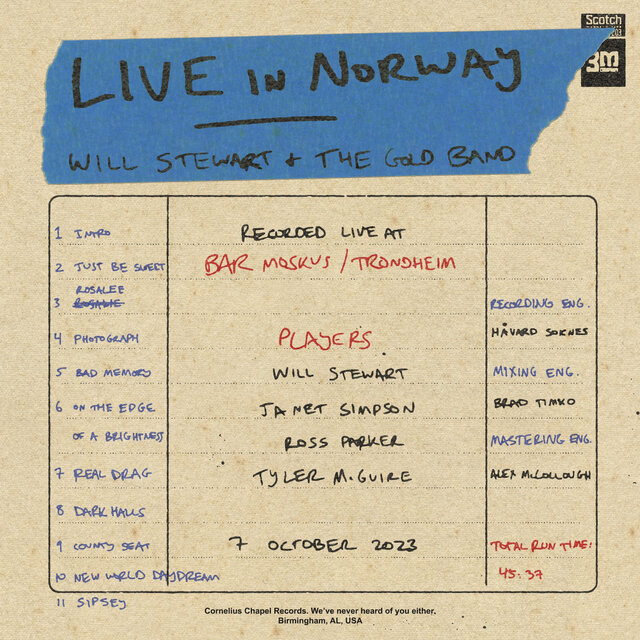 Scotch
3m
LIVE IN NORWAY
WILL STEWART + THE GOLD BAND
1 INTRO
2 JUST BE SWEET
ROSALEE
3 ROSALIE
4 PHOTOGRAPH
5 BAD MEMORY
6 ON THE EDGE
OF A BRIGHTNESS
7 REAL DRAG
8 DARK HALLS
9 COUNTY SEAT
10 NEW WORLD DAYDREAM
11 SIPSEY
RECORDED LIVE AT
BAR MOSKUS / TRONDHEIM
PLAYERS
WILL STEWART
JANET SIMPSON
ROSS PARKER
TYLER McGUIRE
7 OCTOBER 2023
RECORDING ENG.
HÅVARD SOKNES
MIXING ENG.
BRAD TIMKO
MASTERING ENG.
ALEX McCOLLOUGH
TOTAL RUN TIME:
45:37
Cornelius Chapel Records. We've never heard of you either.
Birmingham, AL, USA